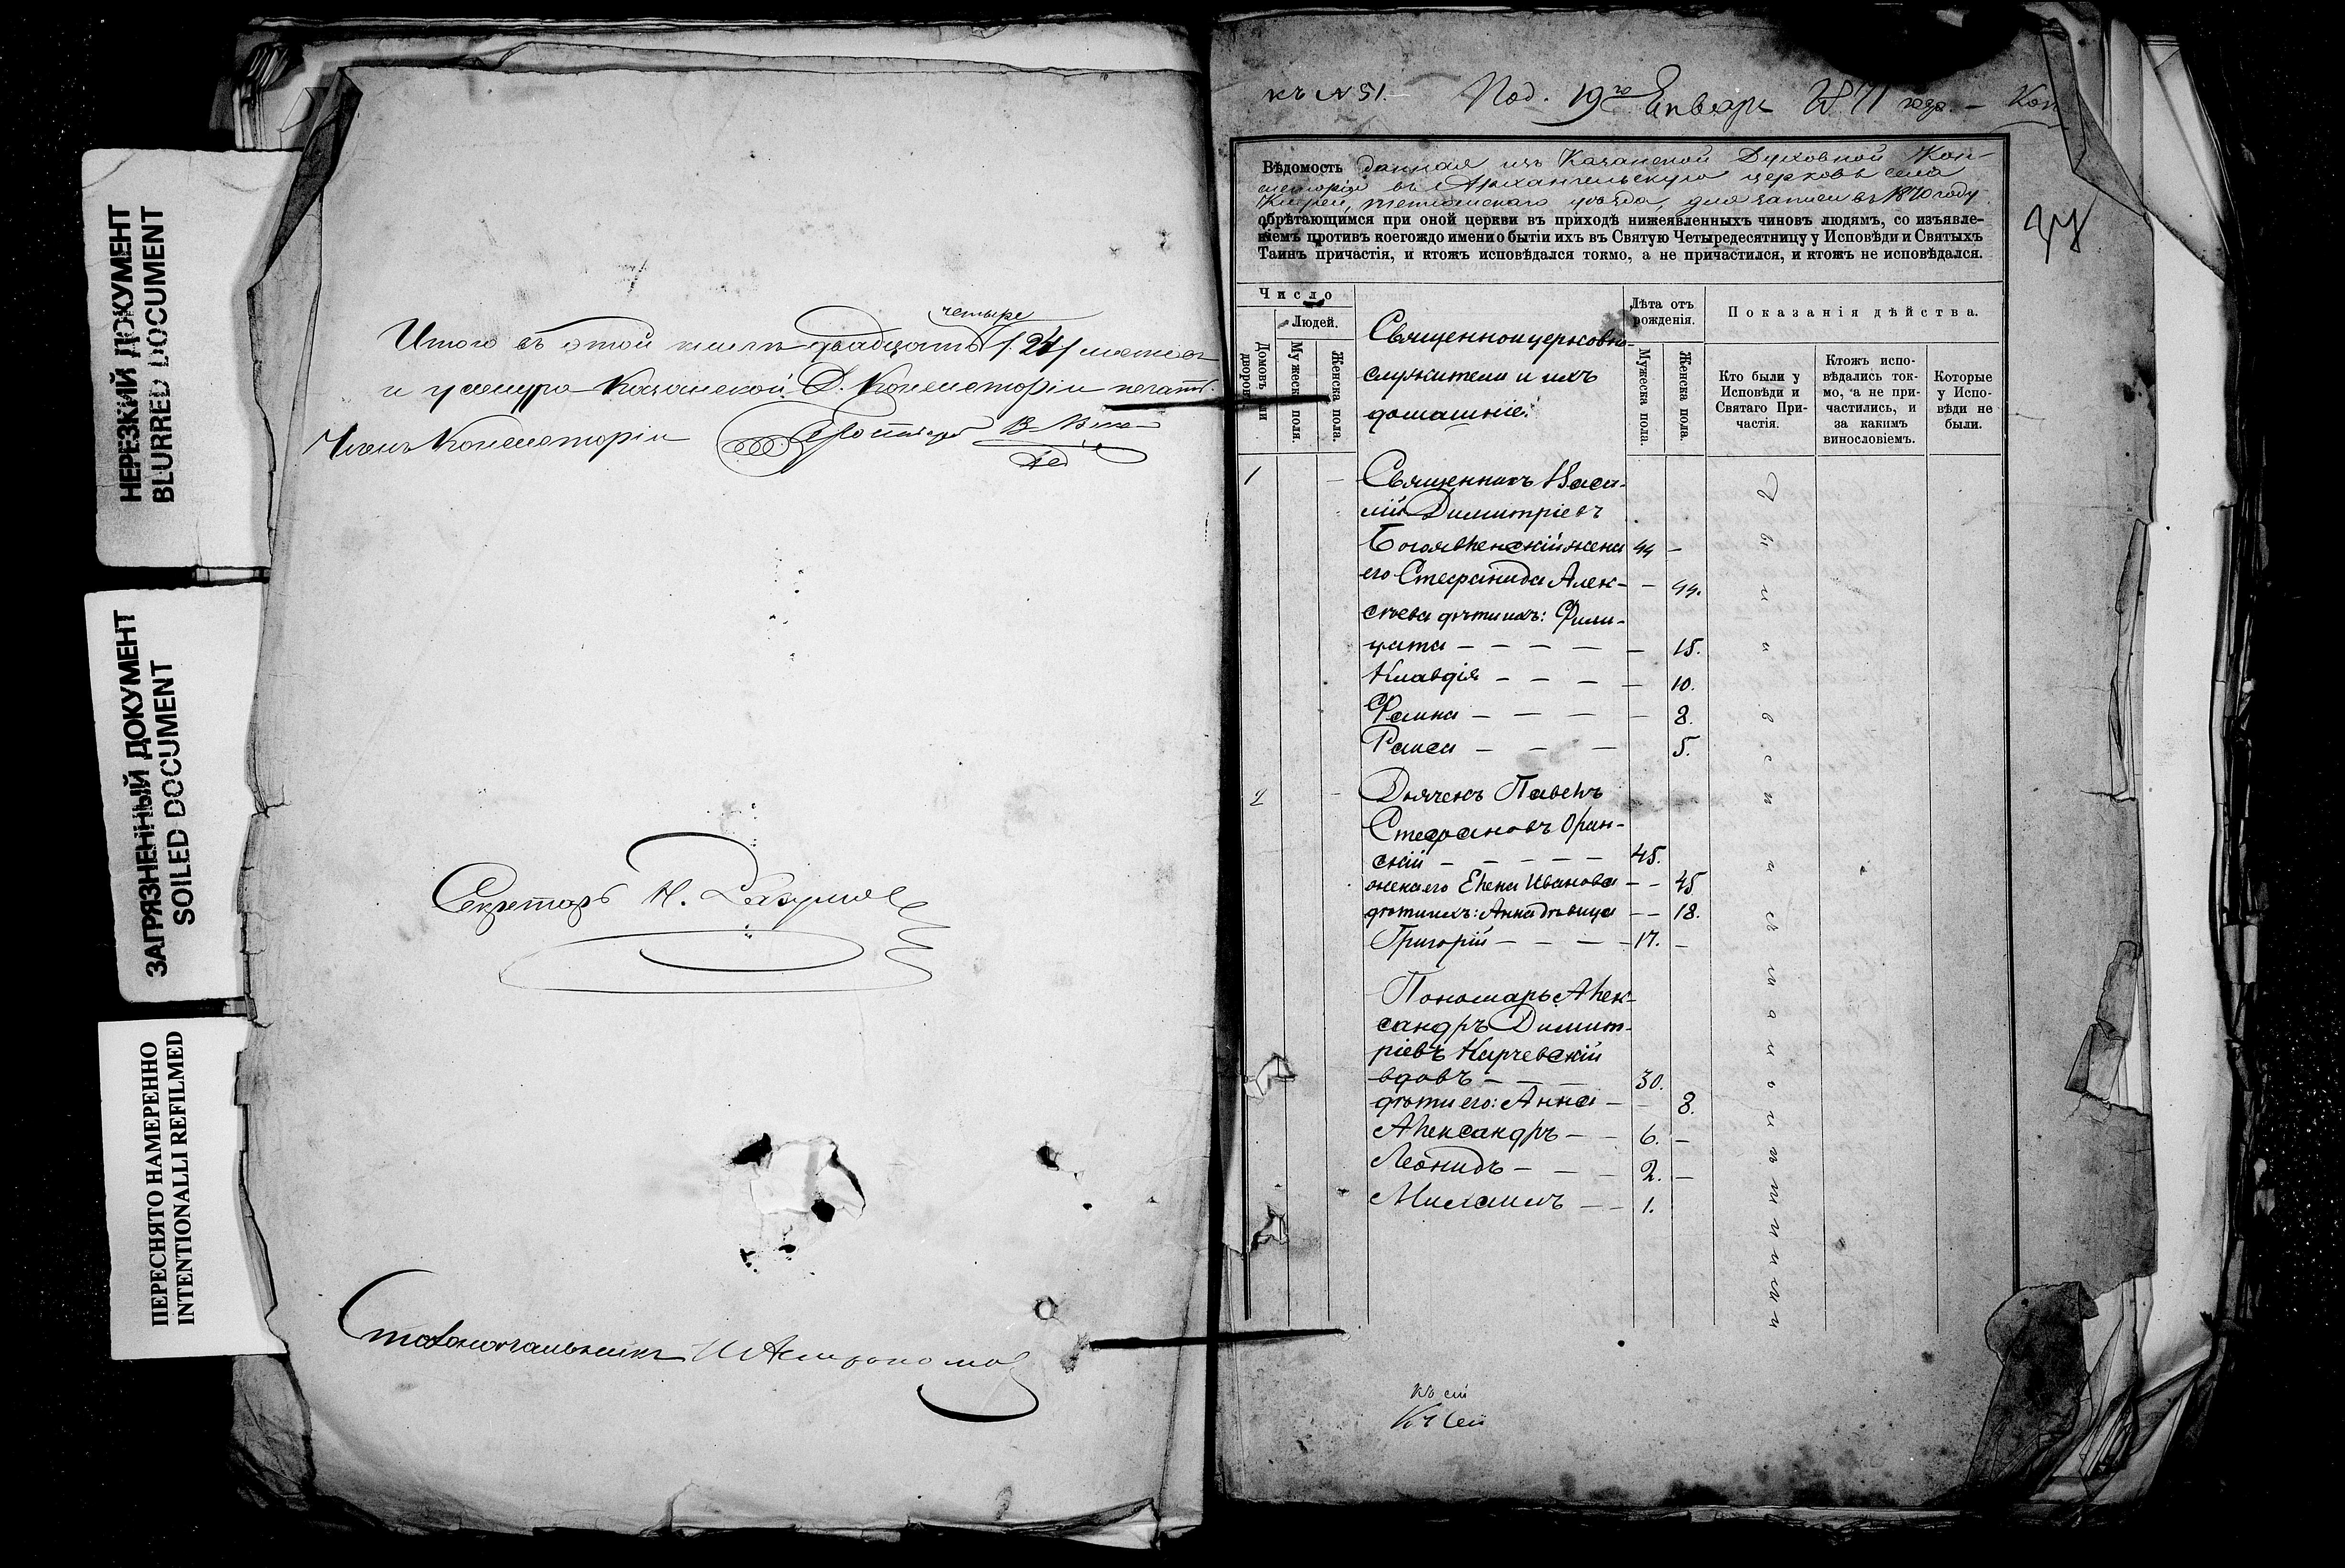 НЕРЕЗКИЙ ДОКУМЕНТ
BLURRED DOCUMENT
ЗАГРЯЗНЕННЫЙ ДОКУМЕНТ
SOILED DOCUMENT
ПЕРЕСНЯТО НАМЕРЕННО
INTENTIONALLI REFILMED
четыре
Итого въ этой книгѣ двадцать /24/ листовъ
и у сего Казанской Д. Консисторіи печать.
Членъ Консисторіи
Секретарь Н.
Столоначальникъ И Астрономов
къ № 51. Под. 19го Января 1871 года. — Коп
37
Вѣдомость данная изъ Казанской Духовной Кон-
систоріи въ Архангельскую церковь села
Тетюшскаго уѣзда, для записи въ 1870 году
обрѣтающимся при оной церкви въ приходѣ нижеявленныхъ чиновъ людямъ, со изъявле-
ніемъ противъ коегождо имени о бытіи ихъ въ Святую Четыредесятницу у Исповѣди и Святыхъ
Таинъ причастія, и ктожъ исповѣдался токмо, а не причастился, и ктожъ не исповѣдался.
Число
Домовъ или дворовъ.
Людей.
Мужеска пола.
Женска пола.
Священноцерковно-
служители и ихъ
домашніе.
Лѣта отъ рожденія.
Мужеска пола.
Женска пола.
Показанія дѣйства.
Кто были у Исповѣди и Святаго При-частія.
Ктожъ испо-вѣдались ток-мо, а не при-частились, и за какимъ винословіемъ.
Которые у Испо-вѣди не были.
1 — Священникъ Васи-
лій Димитріевъ
Богоявленскій жена 44 —
его Стефанида Алек-— 44.
сѣева дѣти ихъ: Фили-
цата — — — — — 15.
Клавдія — — — — 10.
Фаина — — — — 8.
Раиса — — — 5.
2 — Дьячекъ Павелъ
Стефановъ Оран-
скій — — — — — 45.
жена его Елена Иванова — — 45
дѣти ихъ: Анна дѣвица — — 18.
Григорій — — — — 17. —
Пономарь Алек-
сандръ Димит-
ріевъ Карчевскій
вдовъ — — — 30.
дѣти его: Анна — — 8.
Александръ — — 6. —
Леонидъ — — — 2. —
Михаилъ — — 1.
Къ сей
Къ сей